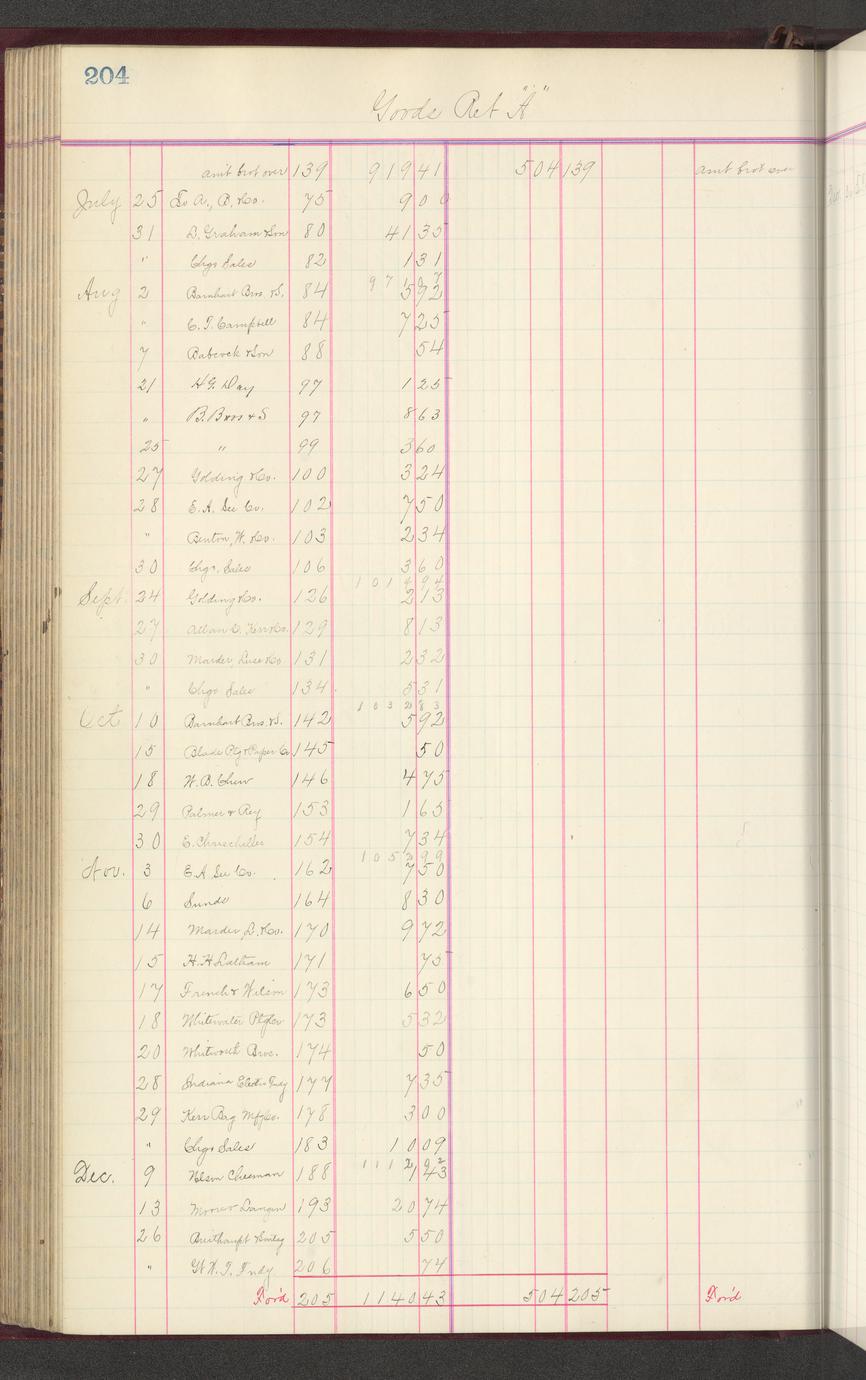 204
Goods Ret "A"
amt brot over 139 919 41 504 139 amt brot over
July 25 Co. 75 9 00
31 D. Graham & Son 80 41 35
" Chgo Sales 82 1 31
971 07
Aug 2 Barnhart Bros. & S. 84 5 92
" C. T. Campbell 84 7 25
7 Babcock & Son 88 54
21 H. G. Day 97 1 25
" B. Bros & S 97 8 63
25 " 99 3 60
27 Golding & Co. 100 3 24
28 E. A. Co. 102 7 50
" Benton, W. & Co. 103 2 34
30 Chgo. Sales 106 3 60
1014 94
Sept. 24 Golding & Co. 126 2 13
27 Alban C. Kerr & Co. 129 8 13
30 Marder, Luse & Co 131 2 32
" Chgo Sales 134 5 31
1032 83
Oct 10 Barnhart Bros. & S. 142 5 92
15 Blade Ptg & Paper Co 145 50
18 W. B. Chew 146 4 75
29 Palmer & Rey 153 1 65
30 E. 154 7 34
1052 99
Nov. 3 E. A. Co. 162 7 50
6 Sunds 164 8 30
14 Marder, L. & Co. 170 9 72
15 H. H. Latham 171 75
17 French & Wilson 173 6 50
18 Whitewater 173 5 32
20 Whitworth Bros. 174 50
28 Indiana Electro Fndy 177 7 35
29 Kerr Bag Mfg Co. 178 3 00
" Chgo Sales 183 10 09
1112 02
Dec. 9 Nelson Chesman 188 1 43
13 Langen 193 20 74
26 205 5 50
" Fndy 206 74
For'd 205 1140 43 504 205 For'd